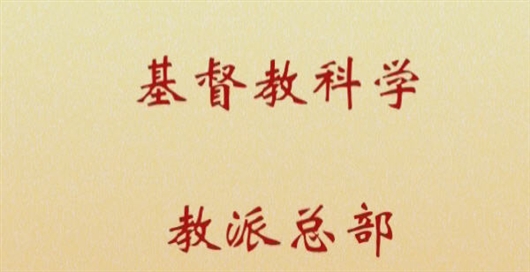 基督教科学
教派总部